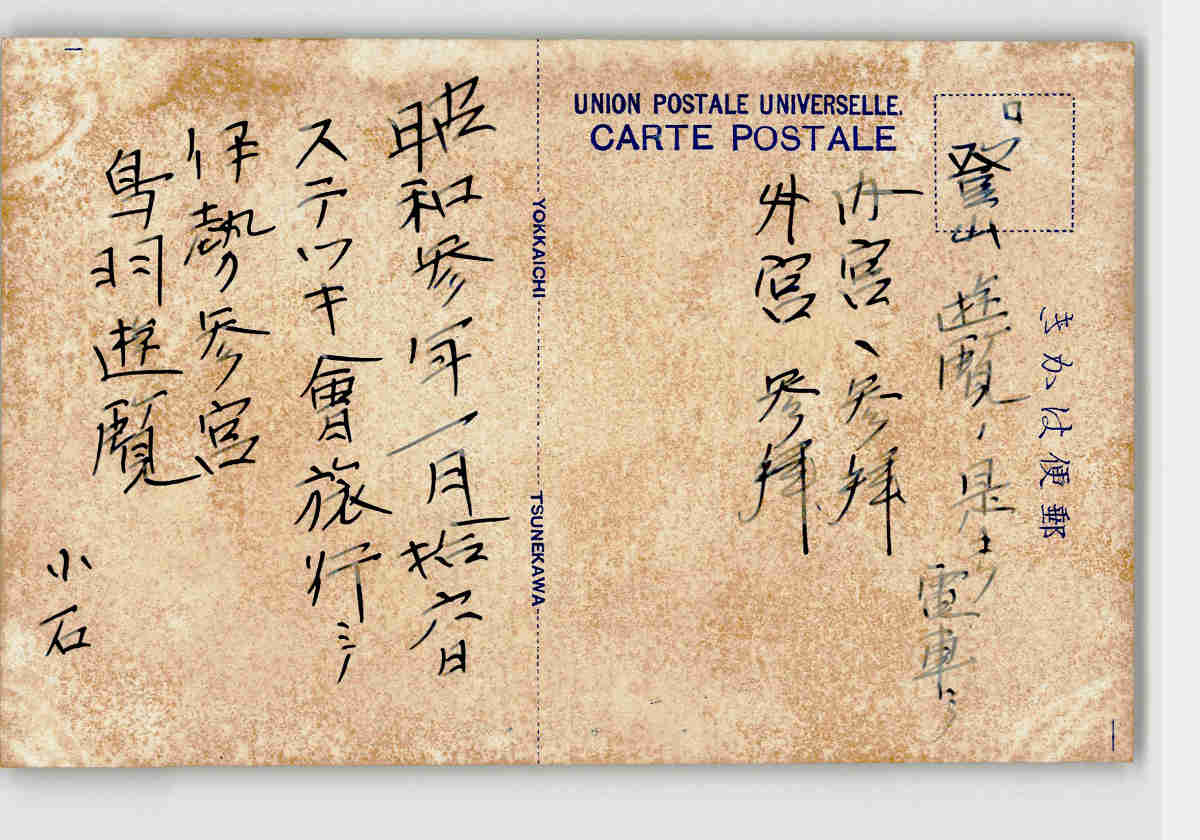 UNION POSTALE UNIVERSELLE.
CARTE POSTALE
きかは便郵
登山遊覧、是ヨリ
電車ニテ
内宮、参拝
外宮参拝
YOKKAICHI TSUNEKAWA
昭和参年一月拾六日
ステッキ會旅行ニテ
伊勢参宮
鳥羽遊覧
小石